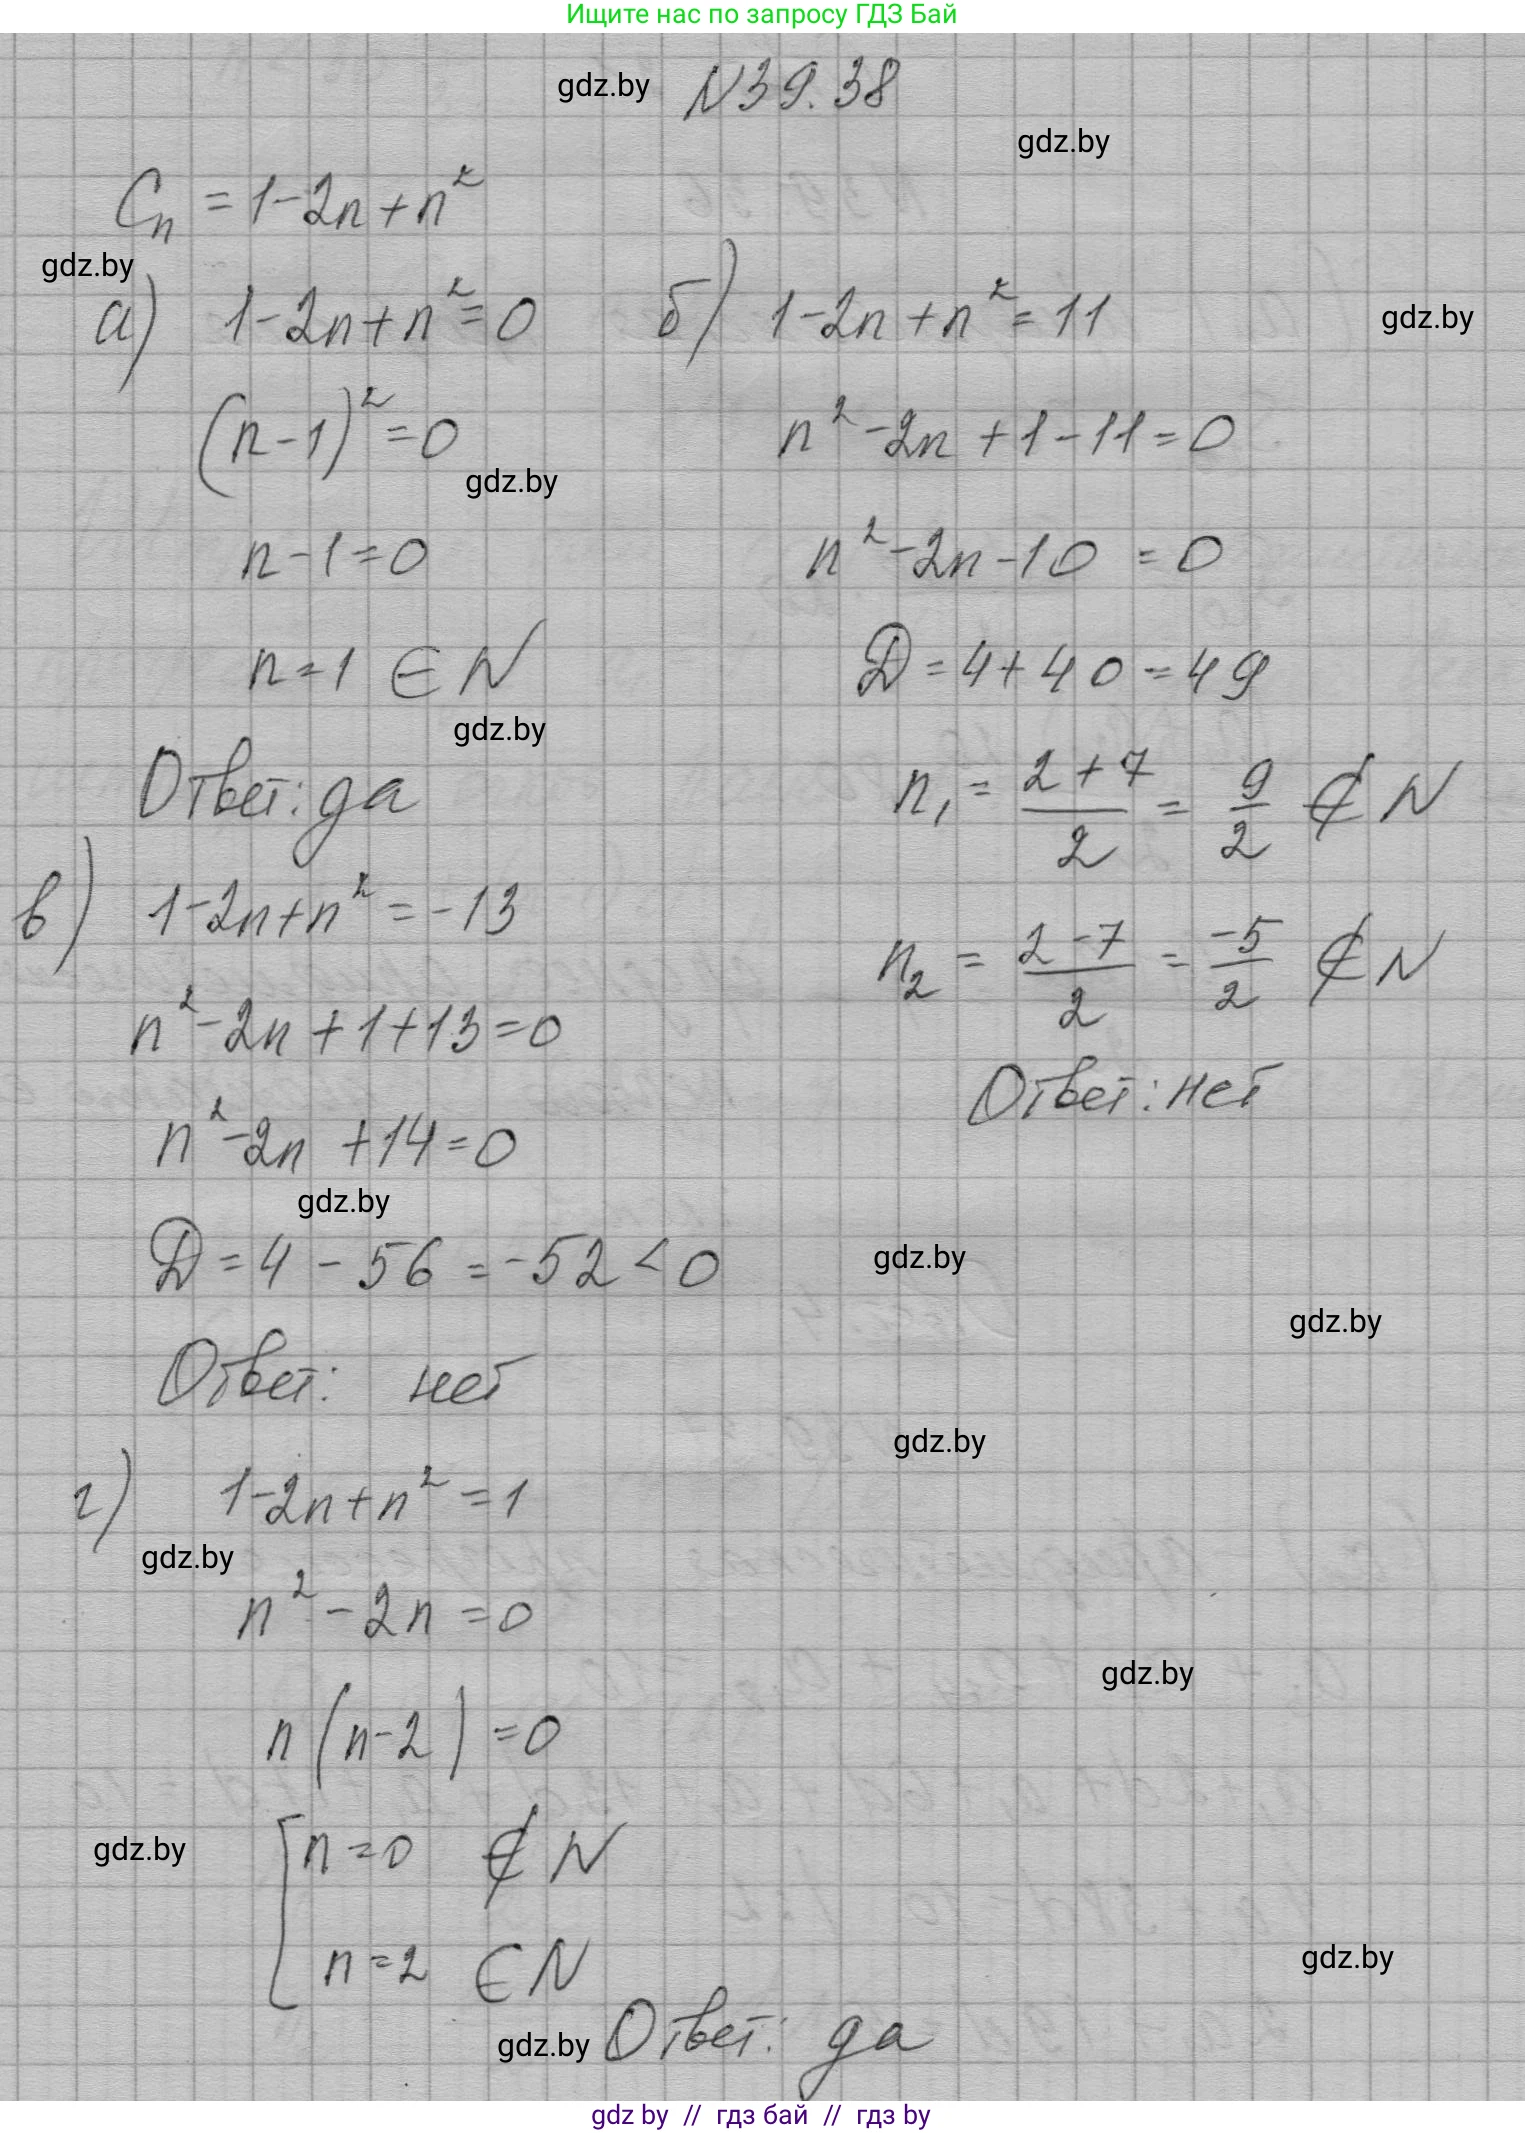 Ищите нас по запросу ГДЗ Бай
gdz.by
N39.38
gdz.by
Cₙ = 1-2n+n²
gdz.by
а) 1-2n+n²=0
(n-1)²=0
gdz.by
n-1=0
n=1 ∈ N
gdz.by
Ответ: да
б) 1-2n+n²=11
gdz.by
n²-2n+1-11=0
n²-2n-10=0
D=4+40=49
n₁ = (2+7)/2 = 9/2 ∉ N
n₂ = (2-7)/2 = -5/2 ∉ N
Ответ: нет
в) 1-2n+n²=-13
n²-2n+1+13=0
n²-2n+14=0
gdz.by
D=4-56=-52<0
gdz.by
gdz.by
Ответ: нет
gdz.by
г) 1-2n+n²=1
gdz.by
n²-2n=0
gdz.by
n(n-2)=0
gdz.by
[n=0 ∉ N
n=2 ∈ N
gdz.by
gdz.by
Ответ: да
gdz by // гдз бай // гдз by